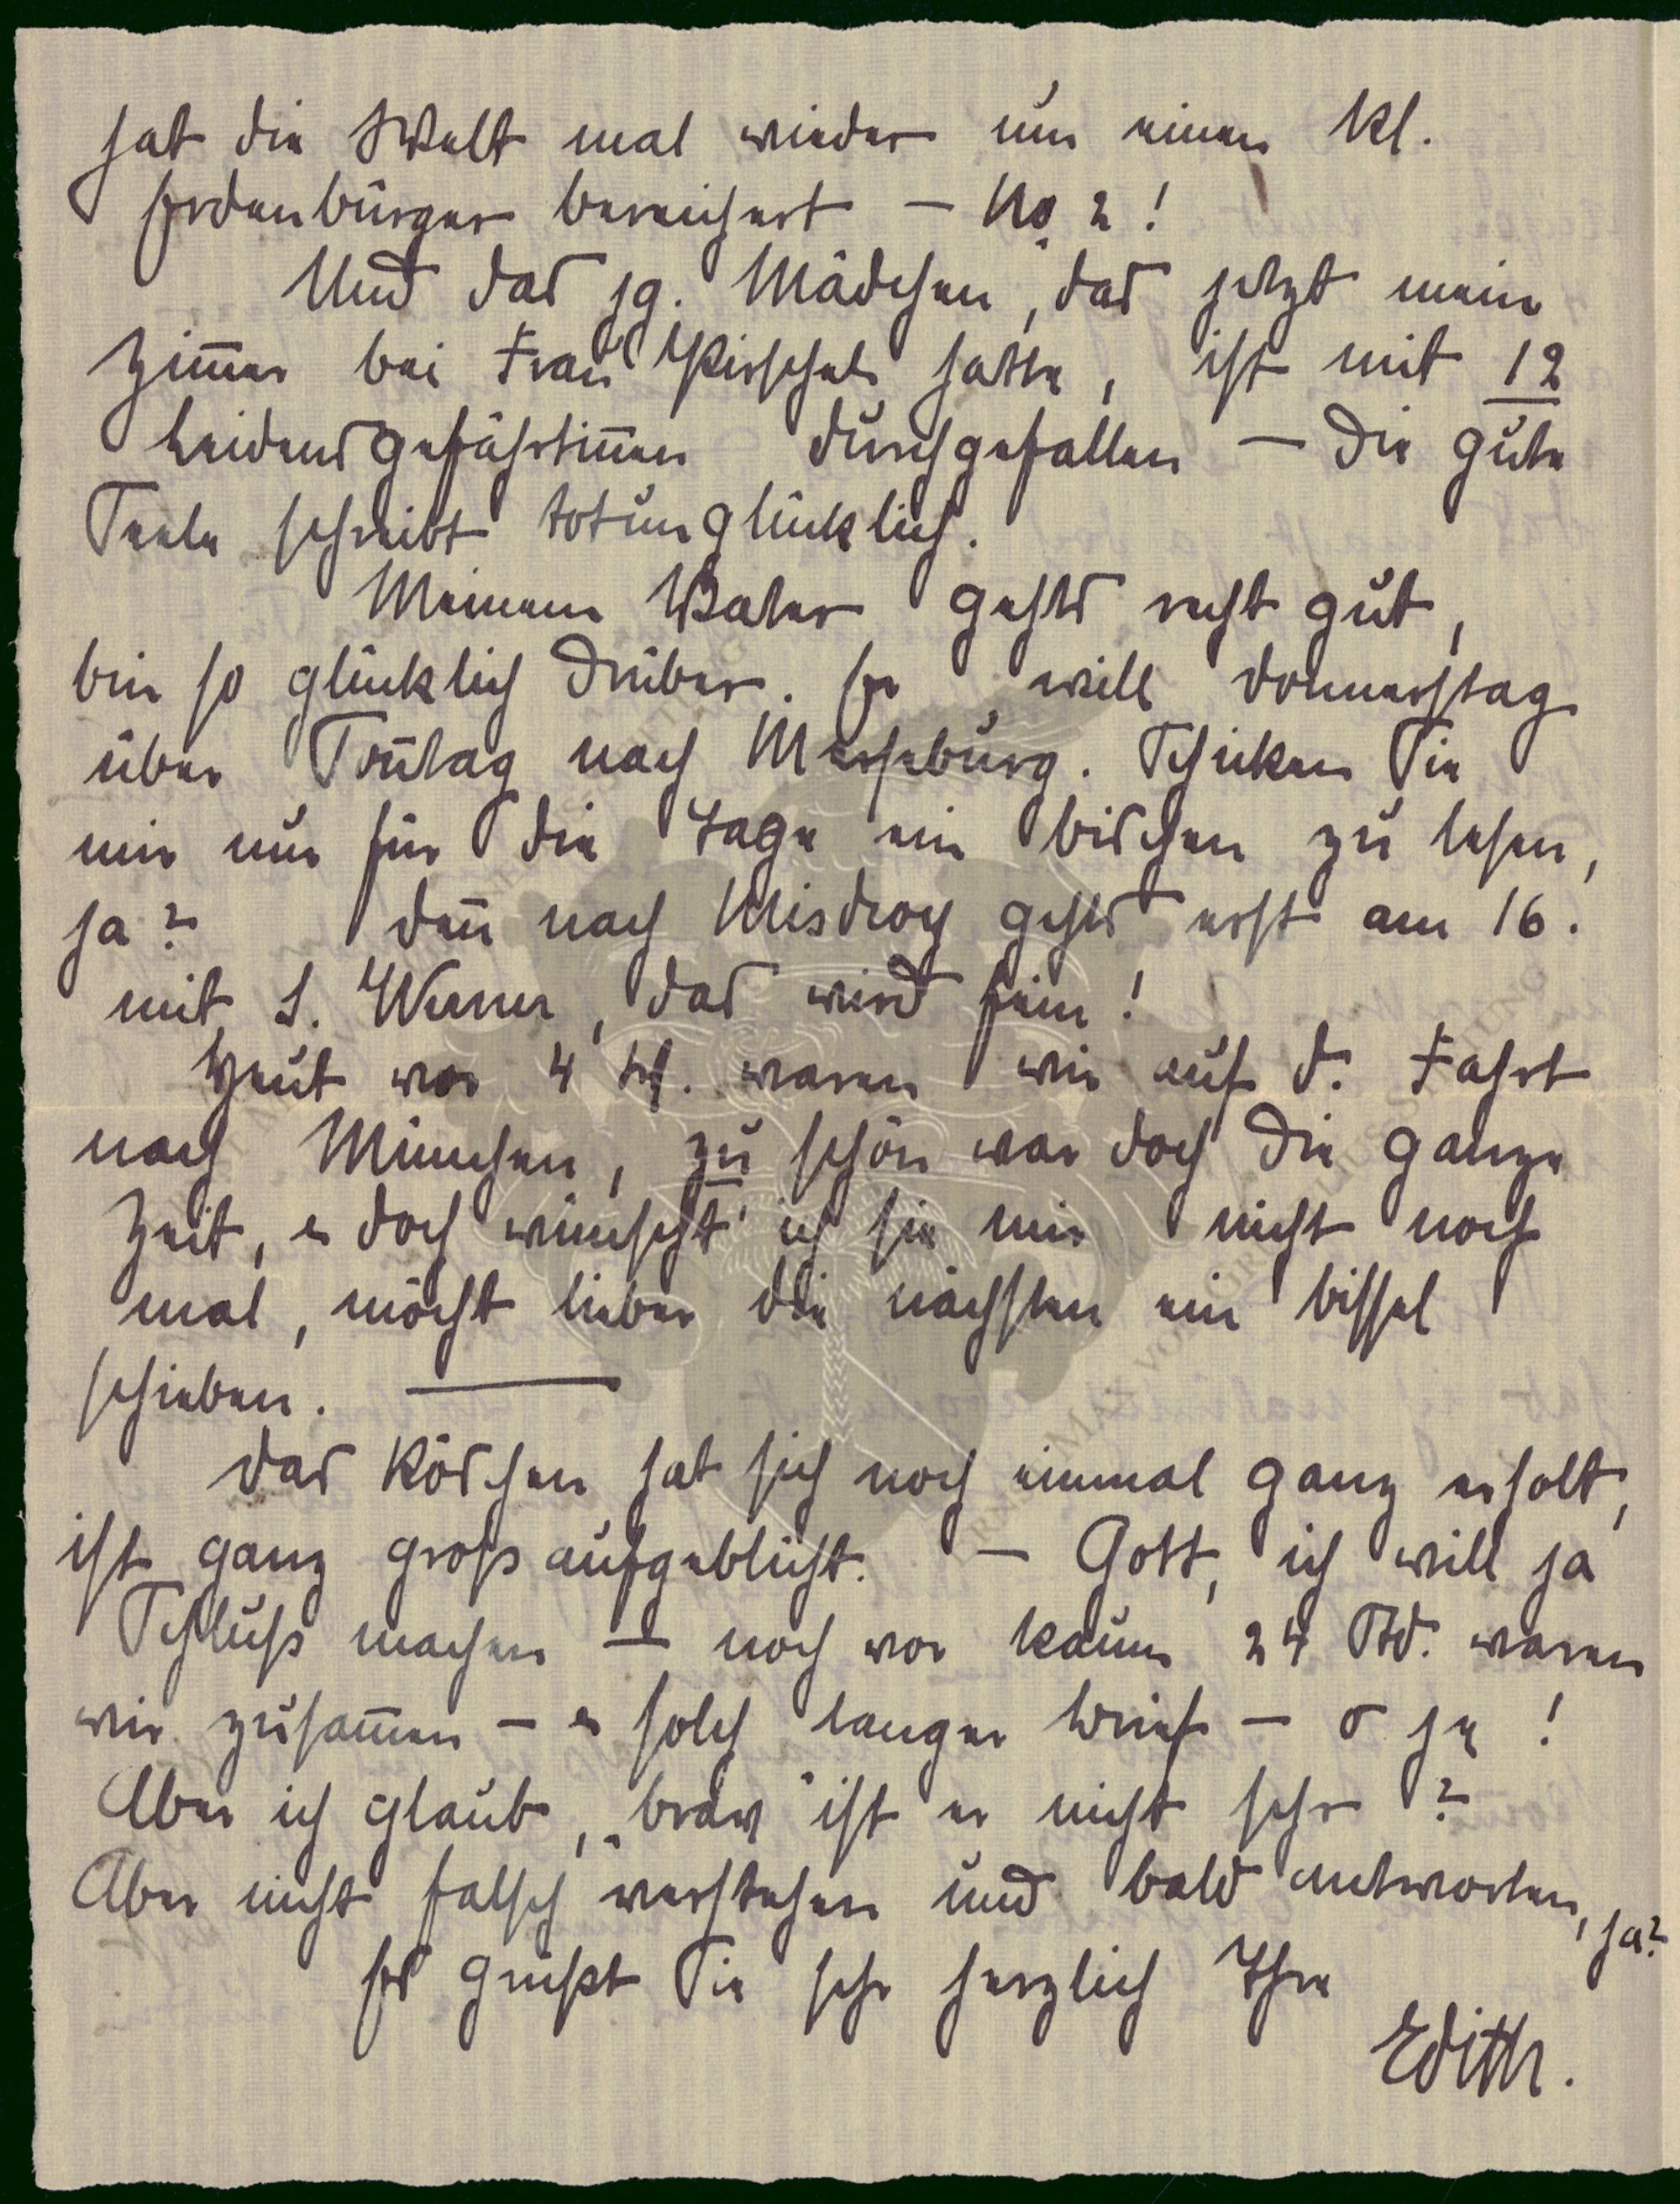 hat die Welt mal wieder um einen kl.
Erdenbürger bereichert – No 2!
Und das jg. Mädchen, das jetzt mein
Zim̅er bei Frau hatte, ist mit 12
Leidensgefährtin̅en durchgefallen – die gute
Seele schreibt totunglücklich.
Meinem Vater gehts recht gut,
bin so glücklich drüber. Er will Donnerstag
über Son̅tag nach Merseburg. Schicken Sie
mir nur für die Tage ein bischen zu lesen,
ja? Den̅ nach Misdroy gehts erst am 16.
mit S. Werner, das wird fein!
Heut vor 4 W. waren wir auf d. Fahrt
nach München, zu schön war doch die ganze
Zeit, u doch wünscht' ich sie mir nicht noch
mal, möcht lieber die nächsten ein bissel
schieben. —
Das Röschen hat sich noch einmal ganz erholt,
ist ganz groß aufgeblüht. – Gott, ich will ja
Schluß machen – noch vor kaum 24 Std. waren
wir zusam̅en – u solch langer Brief – o je!
Aber ich glaub, „brav" ist er nicht sehr?
Aber nicht falsch verstehen und bald antworten, ja?
Es grüßt Sie sehr herzlich Ihre
Edith.